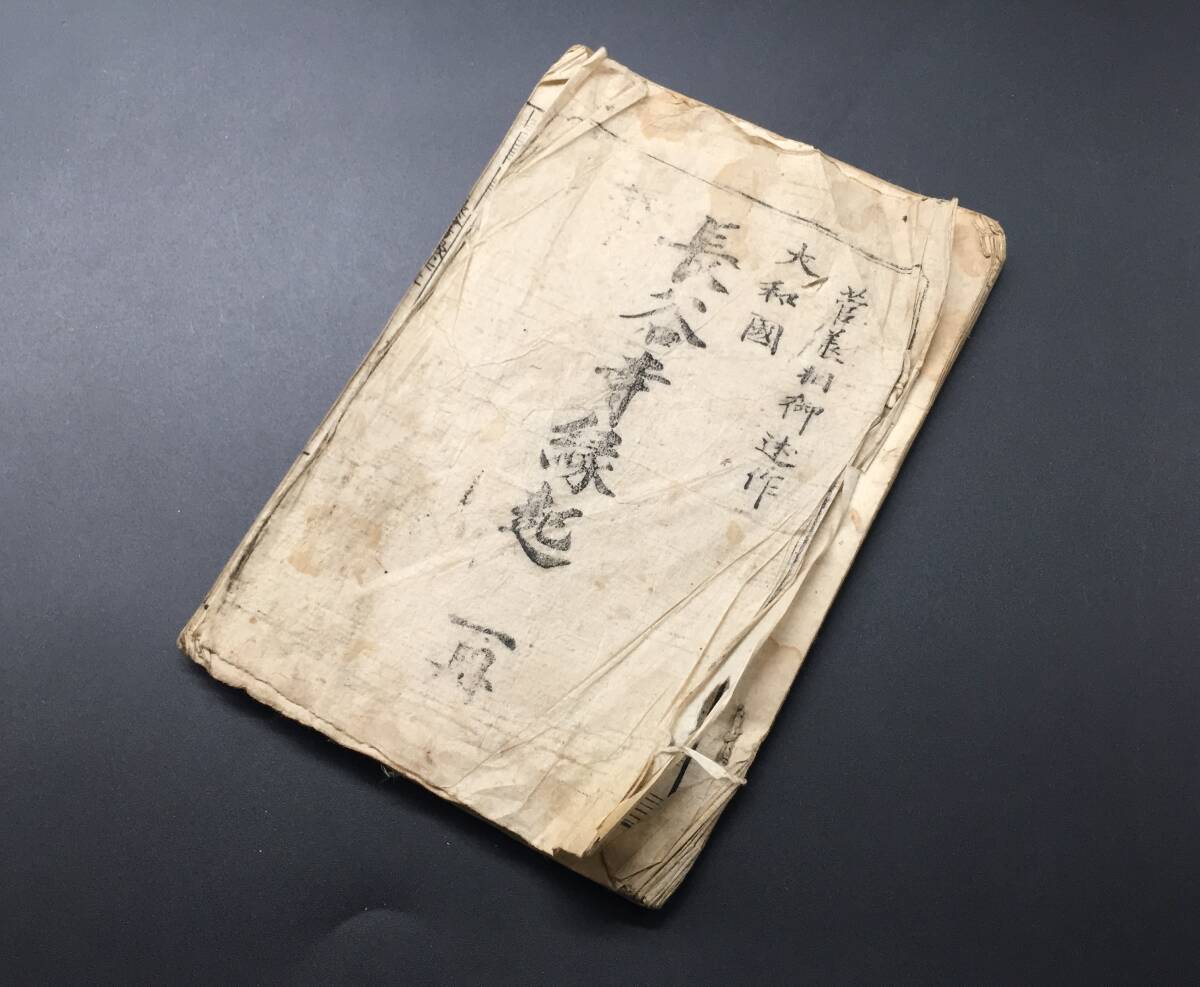 菅丞相御述作
大和國
長谷寺縁起
一冊